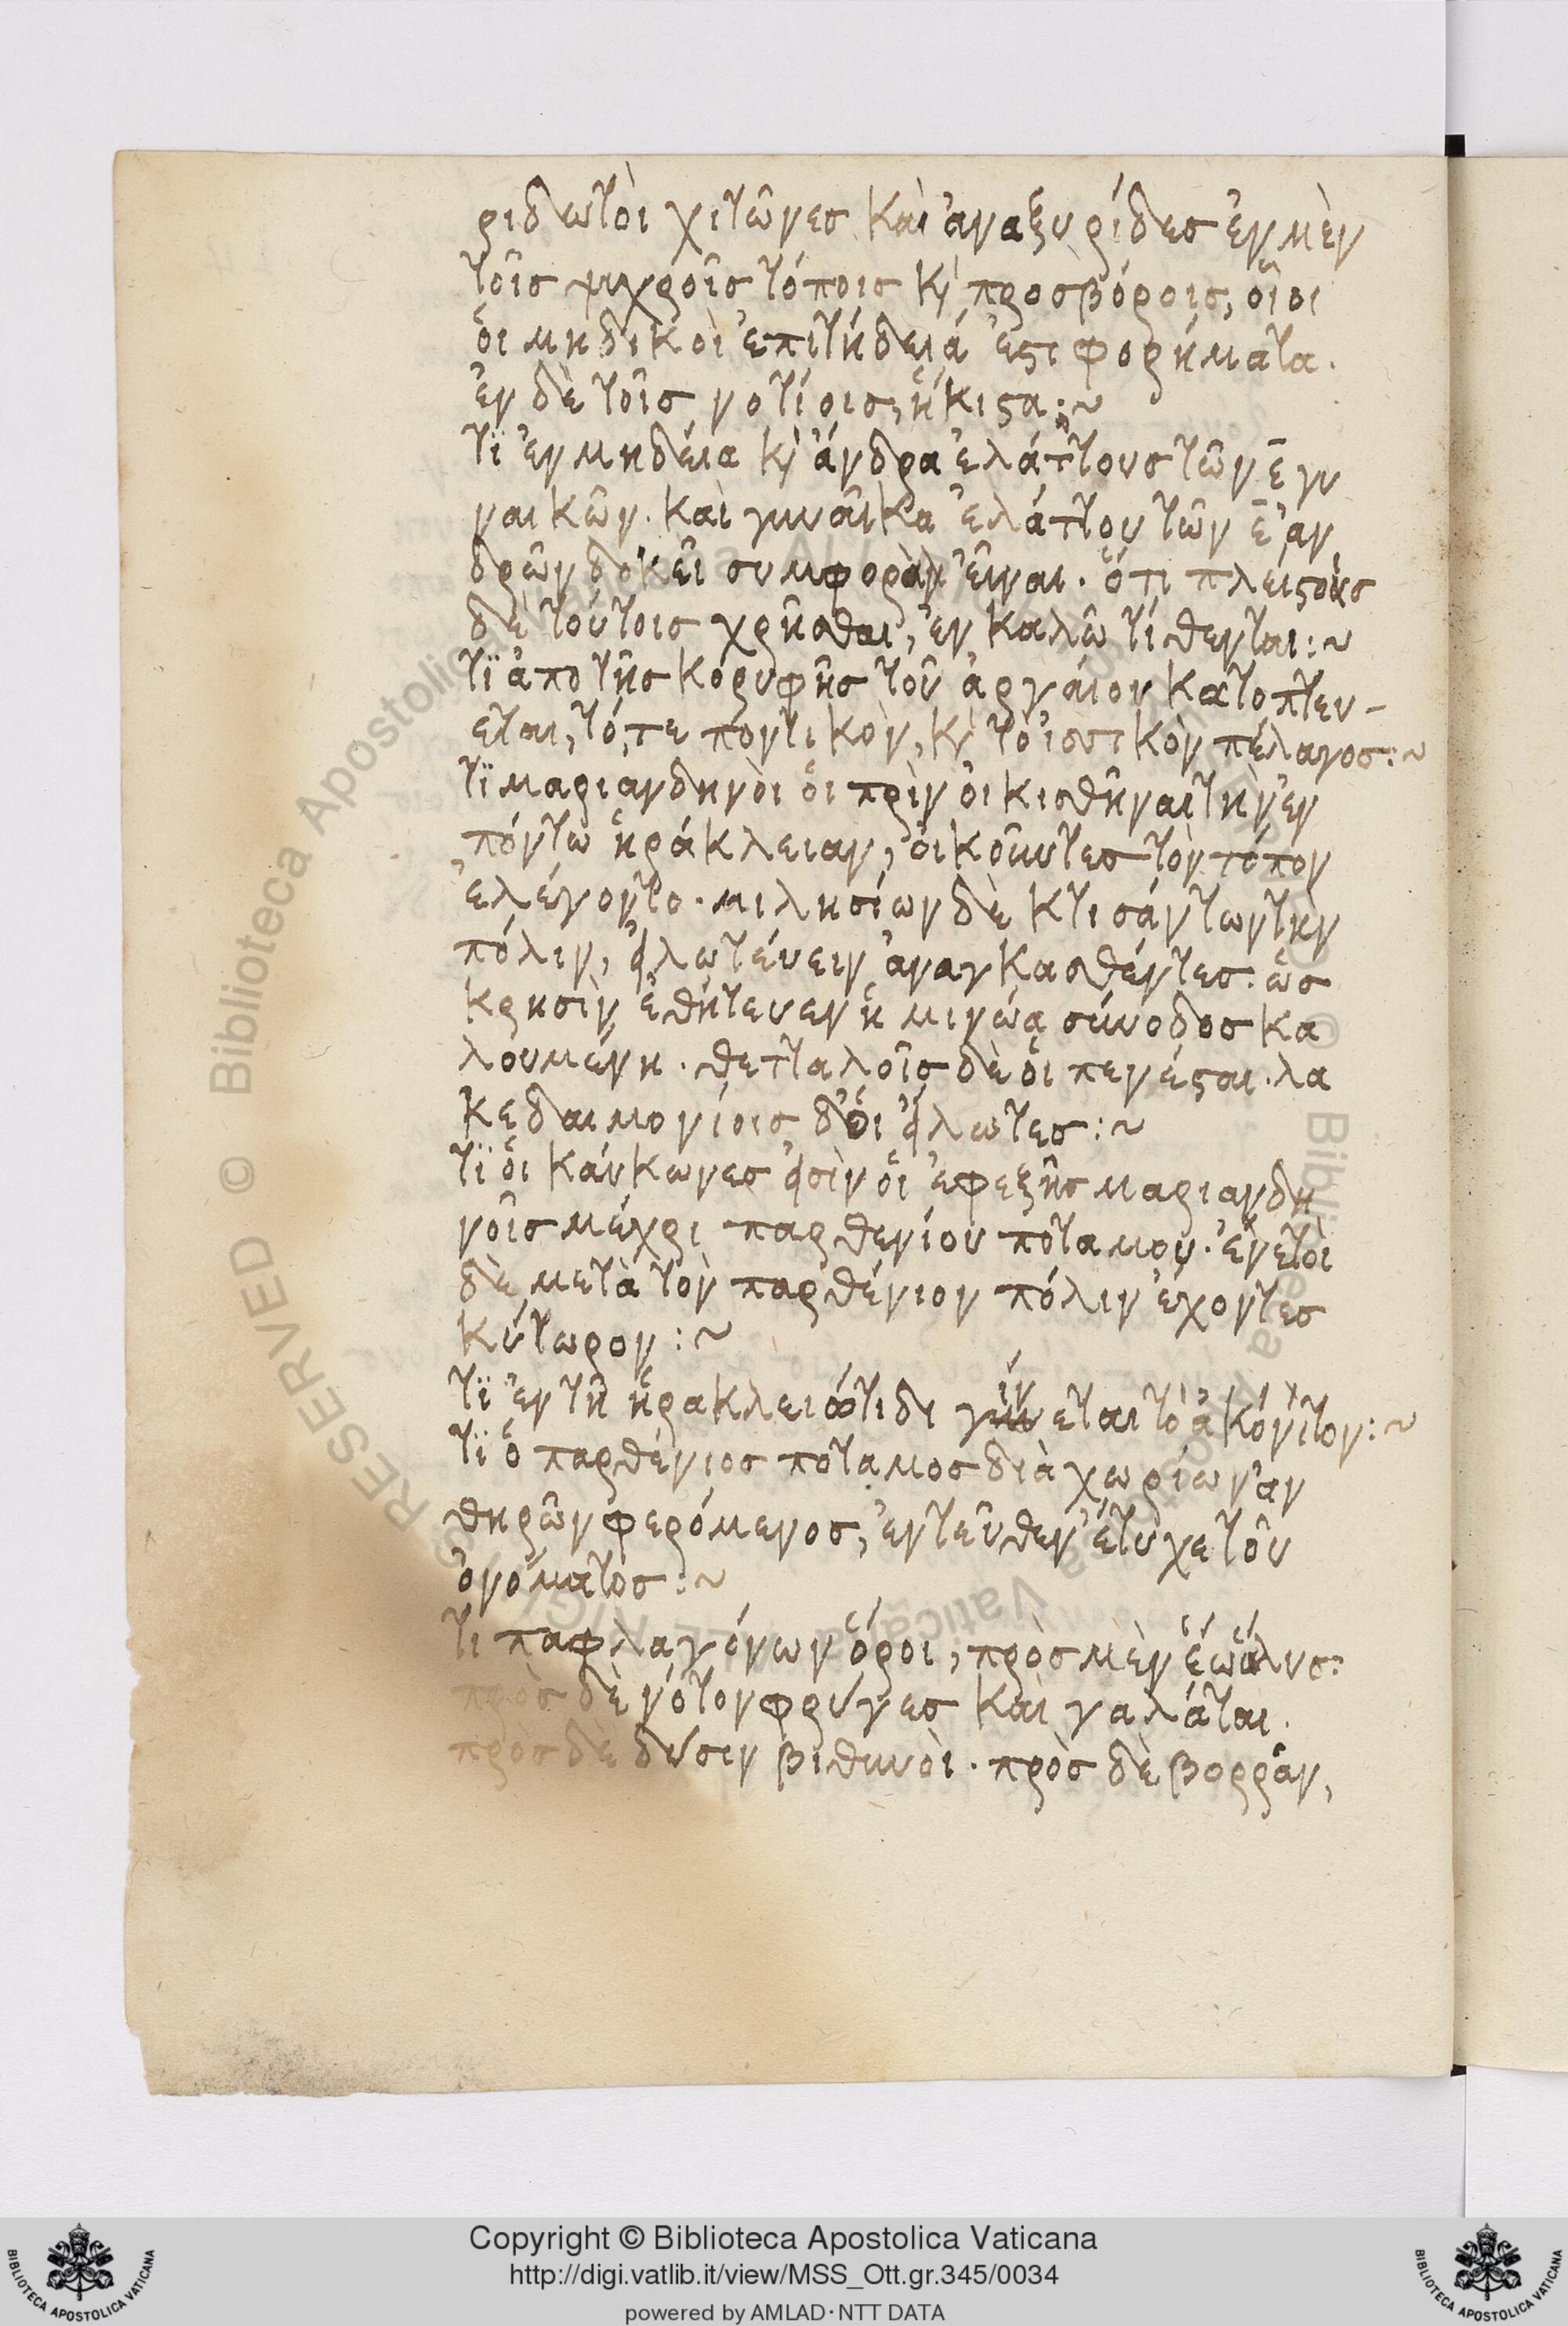 ριδωτοὶ χιτῶνες καὶ ἀναξυρίδες ἐν μὲν
τοῖς ψυχροῖς τόποις κ̀ προσβόροις, οἷοι
ὁι μηδικοὶ ἐπιτήδειά ἐστι φορήματα.
ἐν δὲ τοῖς νοτίοις, ἥκιστα:~
τϊ ἐν μηδέια κ̀ ἄνδρα ἐλάττους τῶν ε̄ γυ
ναικῶν. καὶ γυναῖκα ἐλάττου τῶν ε̄ ἀν
δρῶν δοκεῖ συμφορὰν εἶναι. ὅτι πλείστους
δὲ τούτοις χρῆσθαι, ἐν καλῶ τίθενται:~
τϊ ἀπο τῆς κορυφῆς τοῦ ἀργάιου κατοπτευ-
εται, τό, τε ποντικὸν, κ̀ τὸ ἰσστικὸν πέλαγος:~
τϊ μαριανδηνὸι ὁι πρὶν ὀικισθῆναι τὴν ἐν
πόντω ἡράκλειαν, ὀικοῦντες τὸν τόπον
ἐλέγοντο. μιλησίων δὲ κτισάντων τὴν
πόλιν, εἱλωτέυειν ἀναγκασθέντες. ὡς
κρησὶν ἐθήτευεν ἡ μινώα σύνοδος κα
λουμένη. θετταλοῖς δὲ ὁι πενέσται. λα
κεδαιμονίοις δ' ὁι εἵλωτες:~
τϊ ὁι κάυκωνες εἰσὶν ὁι ἐφεξῆς μαριανδη
νοῖς μέχρι παρθενίου ποταμου. ἐνετὸι
δὲ μετὰ τὸν παρθένιον πόλιν ἔχοντες
κύτωρον:~
τϊ ἐν τῆ ἡρακλειώτιδι γίνεται τὸ ἀκόνιτον:~
τϊ ὁ παρθένιος ποταμος διὰ χωρίων ἀν
θηρῶν φερόμενος, ἐντεῦθεν ἔτυχε τοῦ
ὀνόματος:~
τι παφλαγόνων ὅροι, πρὸς μὲν ἕω ἅλυς:
πρὸς δὲ νότον φρύγες καὶ γαλάται.
πρὸς δὲ δύσιν βιθυνὸι. πρὸς δὲ βορρᾶν,
Copyright © Biblioteca Apostolica Vaticana
http://digi.vatlib.it/view/MSS_Ott.gr.345/0034
powered by AMLAD·NTT DATA